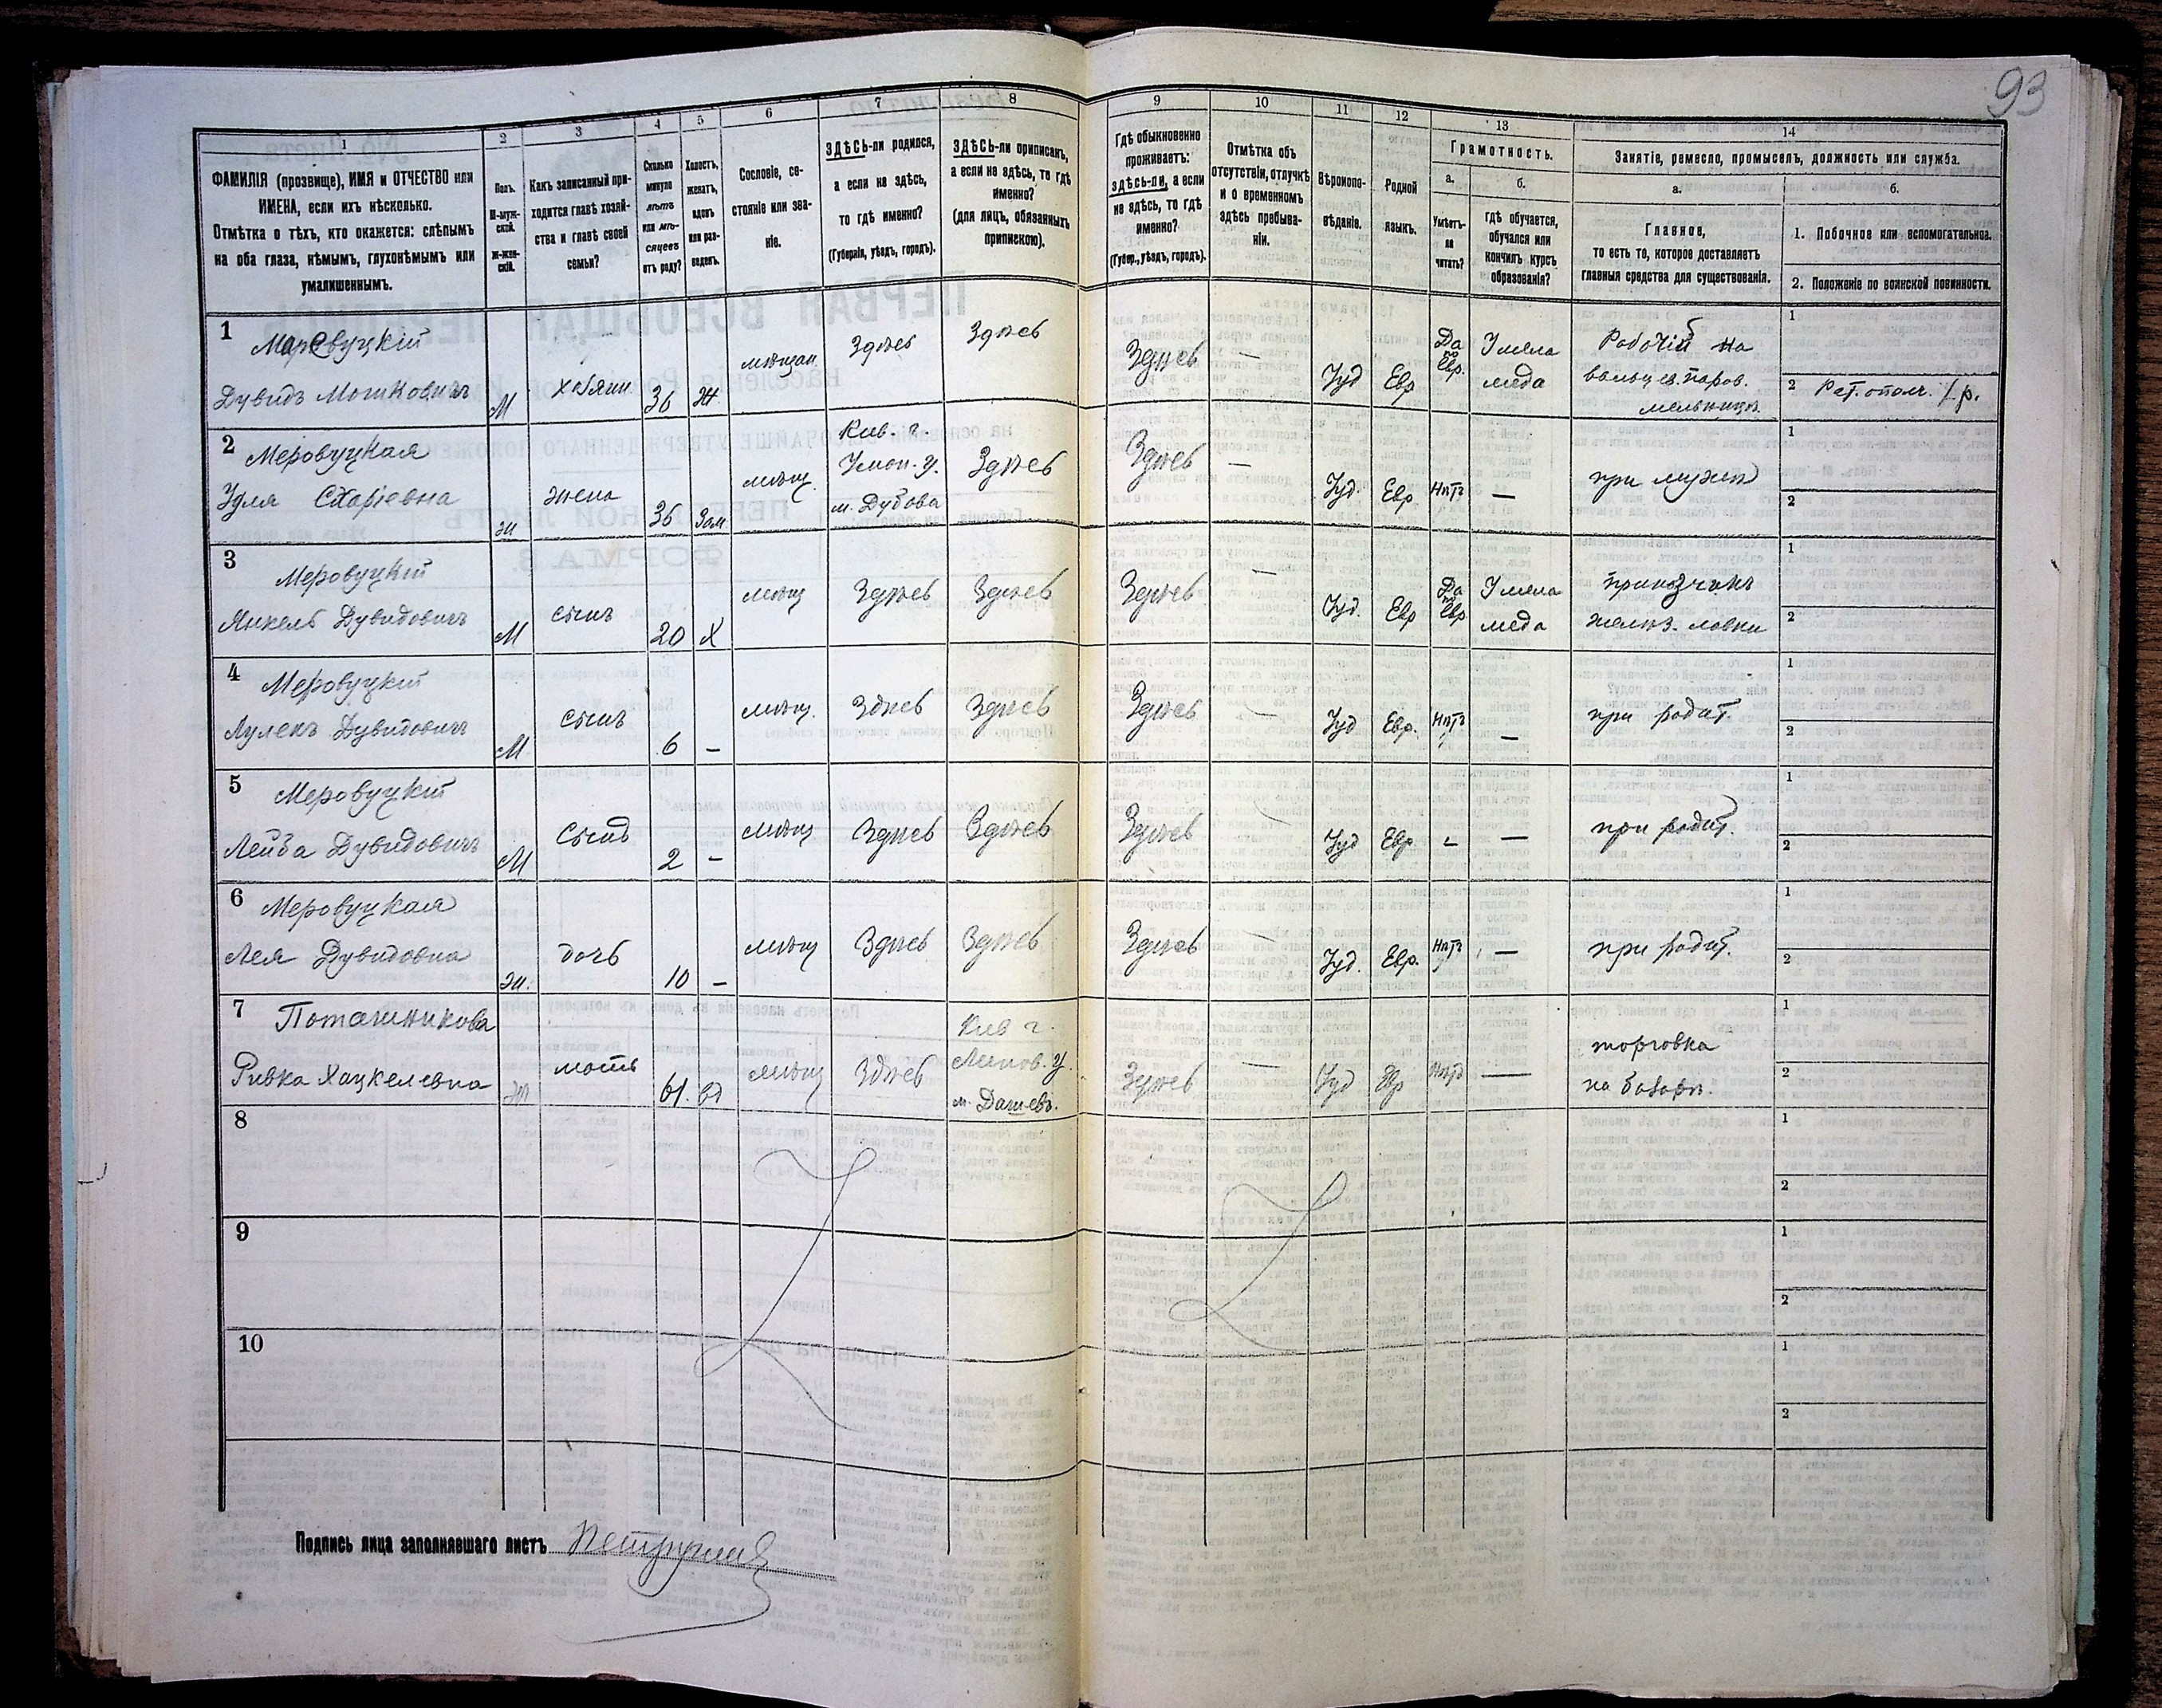 93
1
2
3
4
5
6
7
8
9
10
11
12
13
14
ФАМИЛІЯ (прозвище), ИМЯ и ОТЧЕСТВО или
ИМЕНА, если ихъ нѣсколько.
Отмѣтка о тѣхъ, кто окажется: слѣпымъ
на оба глаза, нѣмымъ, глухонѣмымъ или
умалишеннымъ.
Полъ.
М-муж-
ской.
Ж-жен-
скій.
Какъ записанный при-
ходится главѣ хозяй-
ства и главѣ своей
семьи?
Сколько
минуло
лѣтъ
или мѣ-
сяцевъ
отъ роду?
Холостъ,
женатъ,
вдовъ
или раз-
веденъ.
Сословіе, со-
стояніе или зва-
ніе.
ЗДѢСЬ-ли родился,
а если не здѣсь,
то гдѣ именно?
(Губернія, уѣздъ, городъ).
ЗДѢСЬ-ли приписанъ,
а если не здѣсь, то гдѣ
именно?
(для лицъ, обязанныхъ
припискою).
Гдѣ обыкновенно
проживаетъ:
здѣсь-ли, а если
не здѣсь, то гдѣ
именно?
(Губер., уѣздъ, городъ).
Отмѣтка объ
отсутствіи, отлучкѣ
и о временномъ
здѣсь пребыва-
ніи.
Вѣроиспо-
вѣданіе.
Родной
языкъ.
Грамотность.
а.
Умѣетъ-
ли
читать?
б.
гдѣ обучается,
обучался или
кончилъ курсъ
образованія?
Занятіе, ремесло, промыселъ, должность или служба.
а.
Главное,
то есть то, которое доставляетъ
главныя средства для существованія.
б.
1. Побочное или вспомогательное.
2. Положеніе по воинской повинности.
1 Меровуцкій
Дувидъ Мошковичъ М хозяин. 36 Ж мѣщан. Здѣсь Здѣсь Здѣсь — Іуд Евр Да по Евр. У мела меда Рабочій на
вальцев. паров.
мельницѣ
1
2 Рат. ополч. 1 р.
2 Меровуцкая
Удля Схаріевна ж жена 36 Зам мѣщ. Кив. г.
Умон. у.
м. Дубова Здѣсь Здѣсь — Іуд. Евр Нѣтъ — при мужѣ
1
2
3 Меровуцкій
Янкель Дувидовичъ М сынъ 20 Х мѣщ Здѣсь Здѣсь Здѣсь — Іуд. Евр Да по Евр У мела меда приказчикъ
желѣз. лавки
1
2
4 Меровуцкій
Лулекъ Дувидовичъ М сынъ 6 — мѣщ. Здѣсь Здѣсь Здѣсь — Іуд Евр. Нѣтъ — при родит.
1
2
5 Меровуцкій
Лейба Дувидовичъ М сынъ 2 — мѣщ Здѣсь Здѣсь Здѣсь — Іуд Евр — — при родит.
1
2
6 Меровуцкая
Лея Дувидовна ж. дочь 10 — мѣщ Здѣсь Здѣсь Здѣсь — Іуд. Евр. Нѣтъ — при родит.
1
2
7 Поташникова
Ривка Хацкелевна Ж мать 61. вд мѣщ Здѣсь Кив г.
Липов. у.
м. Дашевъ. Здѣсь — Іуд Евр Нѣтъ — торговка
на базарѣ.
1
2
8
1
2
9
1
2
10
1
2
Подпись лица заполнявшаго листъ